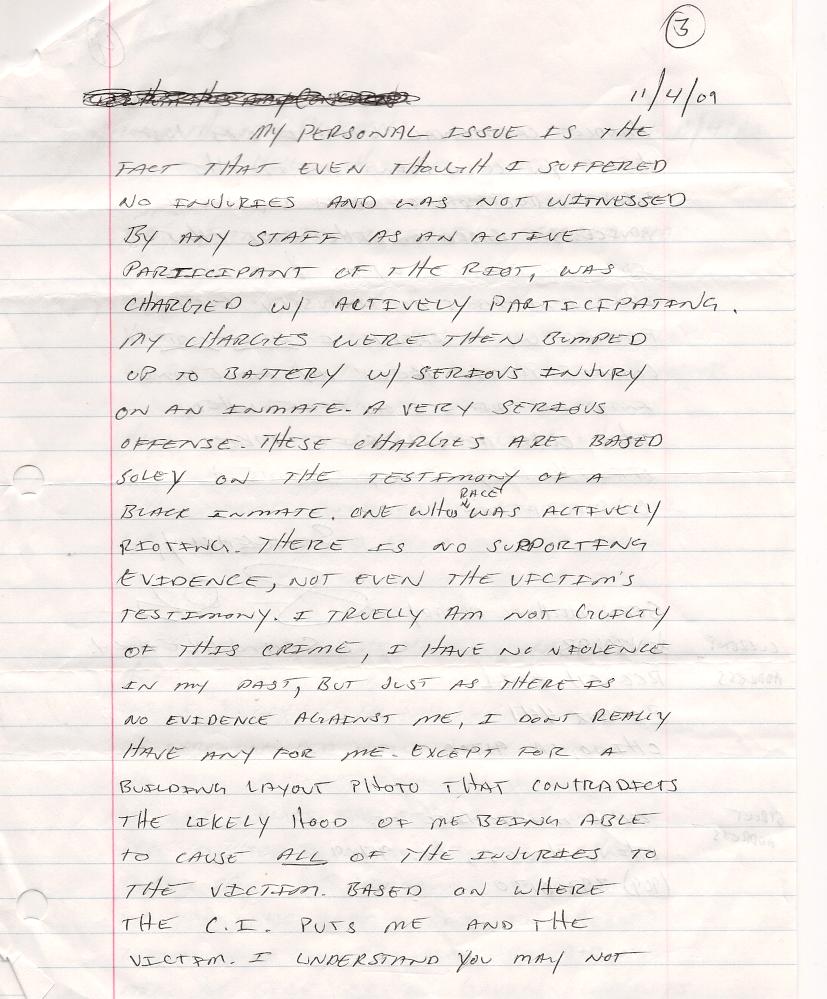 3
11/4/09
MY PERSONAL ISSUE IS THE
FACT THAT EVEN THOUGH I SUFFERED
NO INJURIES AND WAS NOT WITNESSED
BY ANY STAFF AS AN ACTIVE
PARTICIPANT OF THE RIOT, WAS
CHARGED W/ ACTIVELY PARTICIPATING.
MY CHARGES WERE THEN BUMPED
UP TO BATTERY W/ SERIOUS INJURY
ON AN INMATE. A VERY SERIOUS
OFFENSE. THESE CHARGES ARE BASED
SOLEY ON THE TESTIMONY OF A
BLACK INMATE. ONE WHOS RACE WAS ACTIVELY
RIOTING. THERE IS NO SUPPORTING
EVIDENCE, NOT EVEN THE VICTIM'S
TESTIMONY. I TRUELLY AM NOT GUILTY
OF THIS CRIME, I HAVE NO VIOLENCE
IN MY PAST, BUT JUST AS THERE IS
NO EVIDENCE AGAINST ME, I DONT REALLY
HAVE ANY FOR ME. EXCEPT FOR A
BUILDING LAYOUT PHOTO THAT CONTRADICTS
THE LIKELY HOOD OF ME BEING ABLE
TO CAUSE ALL OF THE INJURIES TO
THE VICTIM. BASED ON WHERE
THE C.I. PUTS ME AND THE
VICTIM. I UNDERSTAND YOU MAY NOT